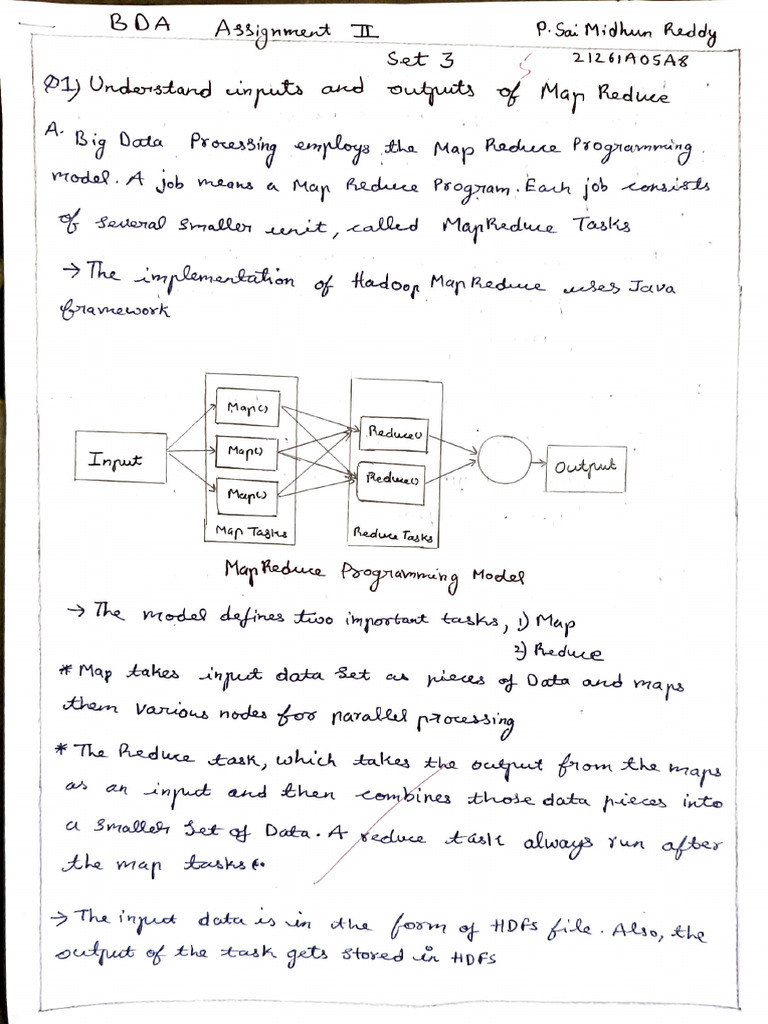 BDA Assignment II P. Sai Midhun Reddy
Set 3 21261A05A8
Q1) Understand inputs and outputs of Map Reduce
A. Big Data Processing employs the Map Reduce Programming
model. A job means a Map Reduce Program. Each job consists
of several smaller unit, called MapReduce Tasks
→ The implementation of Hadoop MapReduce uses Java
framework
Input
Map()
Map()
Map()
Map Tasks
Reduce()
Reduce()
Reduce Tasks
Output
MapReduce Programming Model
→ The model defines two important tasks, 1) Map
2) Reduce
* Map takes input data set as pieces of Data and maps
them various nodes for parallel processing
* The Reduce task, which takes the output from the maps
as an input and then combines those data pieces into
a smaller set of Data. A reduce task always run after
the map tasks.
→ The input data is in the form of HDFS file. Also, the
output of the task gets stored in HDFS